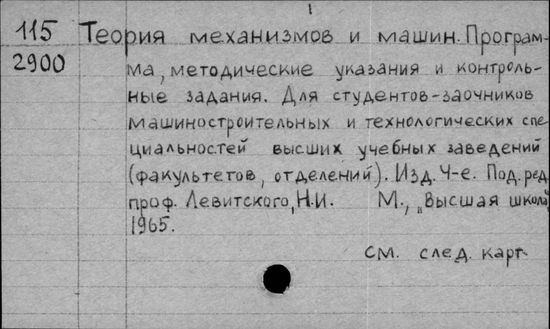 1
115 Теория механизмов и машин. Програм-
2900 ма, методические указания и контроль-
ные задания. Для студентов-заочников
машиностроительных и технологических спе
циальностей высших учебных заведений
(факультетов, отделений). Изд. 4-е. Под. ред.
проф. Левитского, Н.И. М., „Высшая школа"
1965.
см. след. карт.